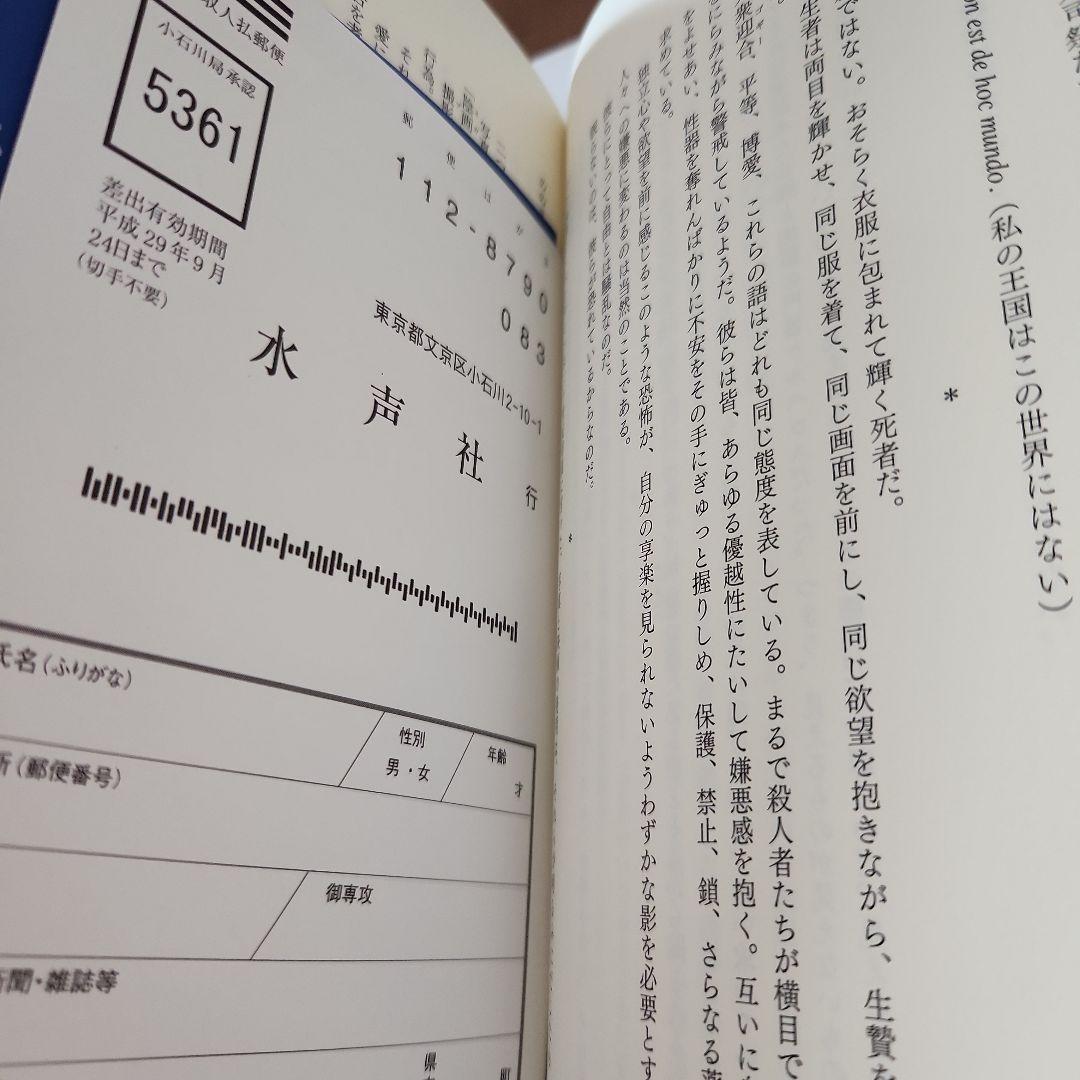 収人払郵便
小石川局承認
5361
差出有効期間
平成29年9月
24日まで
(切手不要)
郵便はがき
112-8790
083
東京都文京区小石川2-10-1
水声社 行
氏名(ふりがな)
性別
男・女
年齢
才
所(郵便番号)
御専攻
新聞・雑誌等
県
on est de hoc mundo.(私の王国はこの世界にはない)
*
ではない。おそらく衣服に包まれて輝く死者だ。
生者は両目を輝かせ、同じ服を着て、同じ画面を前にし、同じ欲望を抱きながら、生贄を
衆迎合、平等、博愛、これらの語はどれも同じ態度を表している。まるで殺人者たちが横目で
にらみながら警戒しているようだ。彼らは皆、あらゆる優越性にたいして嫌悪感を抱く。互いに
をよせあい、性器を奪れんばかりに不安をその手にぎゅっと握りしめ、保護、禁止、鎖、さらなる
求めている。
独立心や欲望を前に感じるこのような恐怖が、自分の享楽を見られないようわずかな影を必要とす
人々への嫌悪に変わるのは当然のことである。
彼らにとって自由とは騒乱なのだ。
*